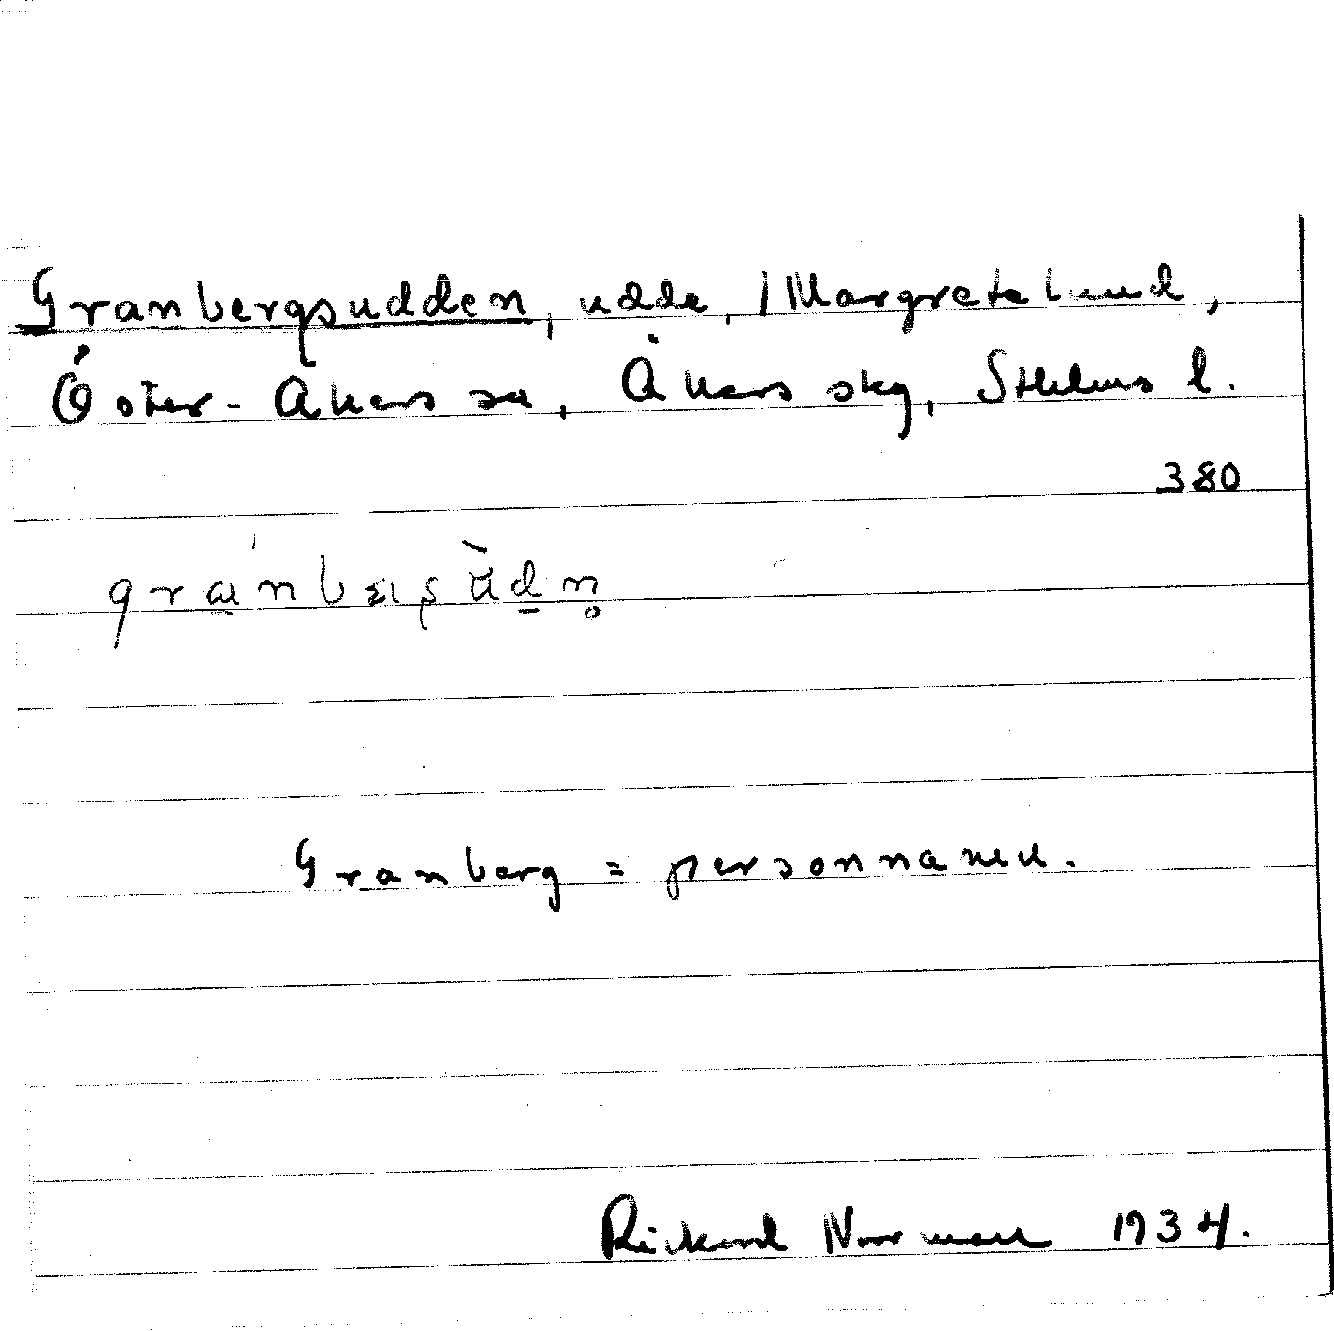 Granbergsudden, udde, / Margretelund,
Öster-Åkers sn, Åkers skg, Sthlms l.
380
Granberg = personnamn.
Rickard Norman 1934.